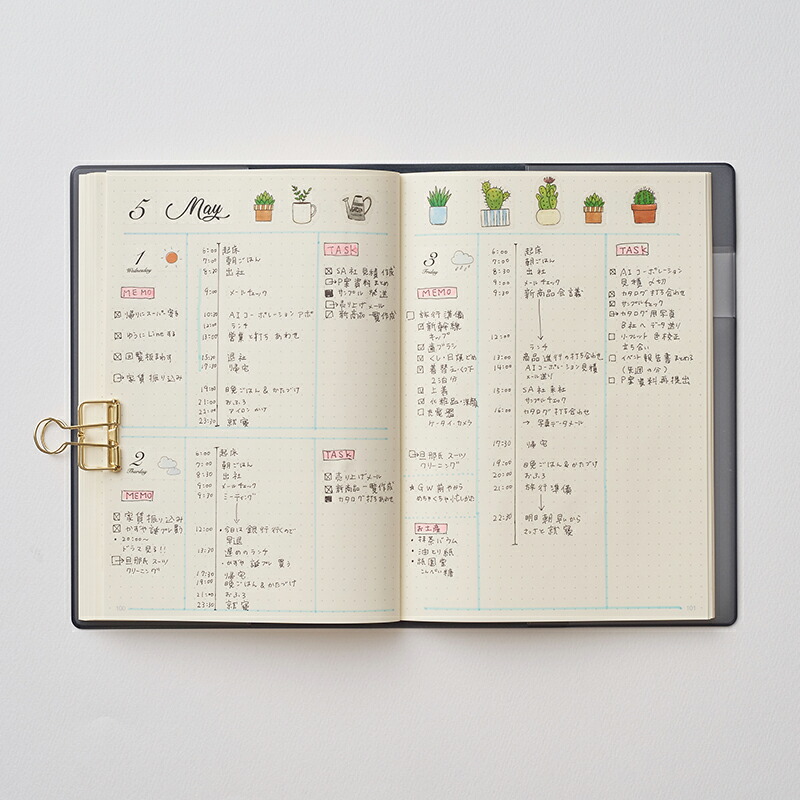 5 May
1
Wednesday
MEMO
☒ 帰りにスーパー寄る
☒ ゆうにLineする
☒ 回覧板まわす
家賃振り込み
6:00 起床
7:00 朝ごはん
8:30 出社
9:00 メールチェック
10:30 AIコーポレーション アポ
12:00 ランチ
13:00 営業と打ち合わせ
退社
帰宅
19:00 晩ごはん&かたづけ
21:00 おふろ
22:00 アイロンがけ
23:30 就寝
TASK
☒ SA社 見積作成
P案資料まとめ
サンプル発送
売り上げメール
☒ 新商品一覧作成
2
Thursday
MEMO
☒ 家賃振り込み
☒ かずや誕プレ買う
・20:00~
ドラマ見る!!
旦那氏スーツ
クリーニング
6:00 起床
7:00 朝ごはん
8:30 出社
9:00 メールチェック
9:30 ミーティング
12:00 ・今日は銀行行くので
早退
13:30 遅めのランチ
・かずや誕プレ買う
17:30 帰宅
19:00 晩ごはん&かたづけ
21:00 おふろ
23:30 就寝
TASK
☒ 売り上げメール
☒ 新商品一覧作成
カタログ打ち合わせ
100
3
Friday
MEMO
☐ 旅行準備
☒ 新幹線
キップ
☒ 歯ブラシ
☒ くし・日焼どめ
☒ 着替え・くつ下
2泊分
☒ 上着
☒ 化粧品・洗顔
☐ 充電器
ケータイ・カメラ
旦那氏スーツ
クリーニング
★GW前やから
めちゃくちゃ忙しかった
お土産
・抹茶バウム
・油とり紙
・祇園堂
こんぺい糖
6:00 起床
7:00 朝ごはん
8:30 出社
9:00 メールチェック
9:30 新商品会議
12:00 ランチ
13:00 商品進行の打ち合わせ
14:00 AIコーポレーション見積
メール送り
15:00 SA社来社
サンプルチェック
16:00 カタログ打ち合わせ
→ 写真データメール
17:30 帰宅
19:00 晩ごはん&かたづけ
20:00 おふろ
21:00 旅行準備
22:30 明日朝早いから
さっさと就寝
TASK
☒ AIコーポレーション
見積〆切
☒ カタログ打ち合わせ
☒ サンプルチェック
カタログ用写真
B社へデータ送り
☐ リーフレット色校正
立ち合い
☐ イベント報告書まとめる
(先週の分)
☐ P案資料再提出
101